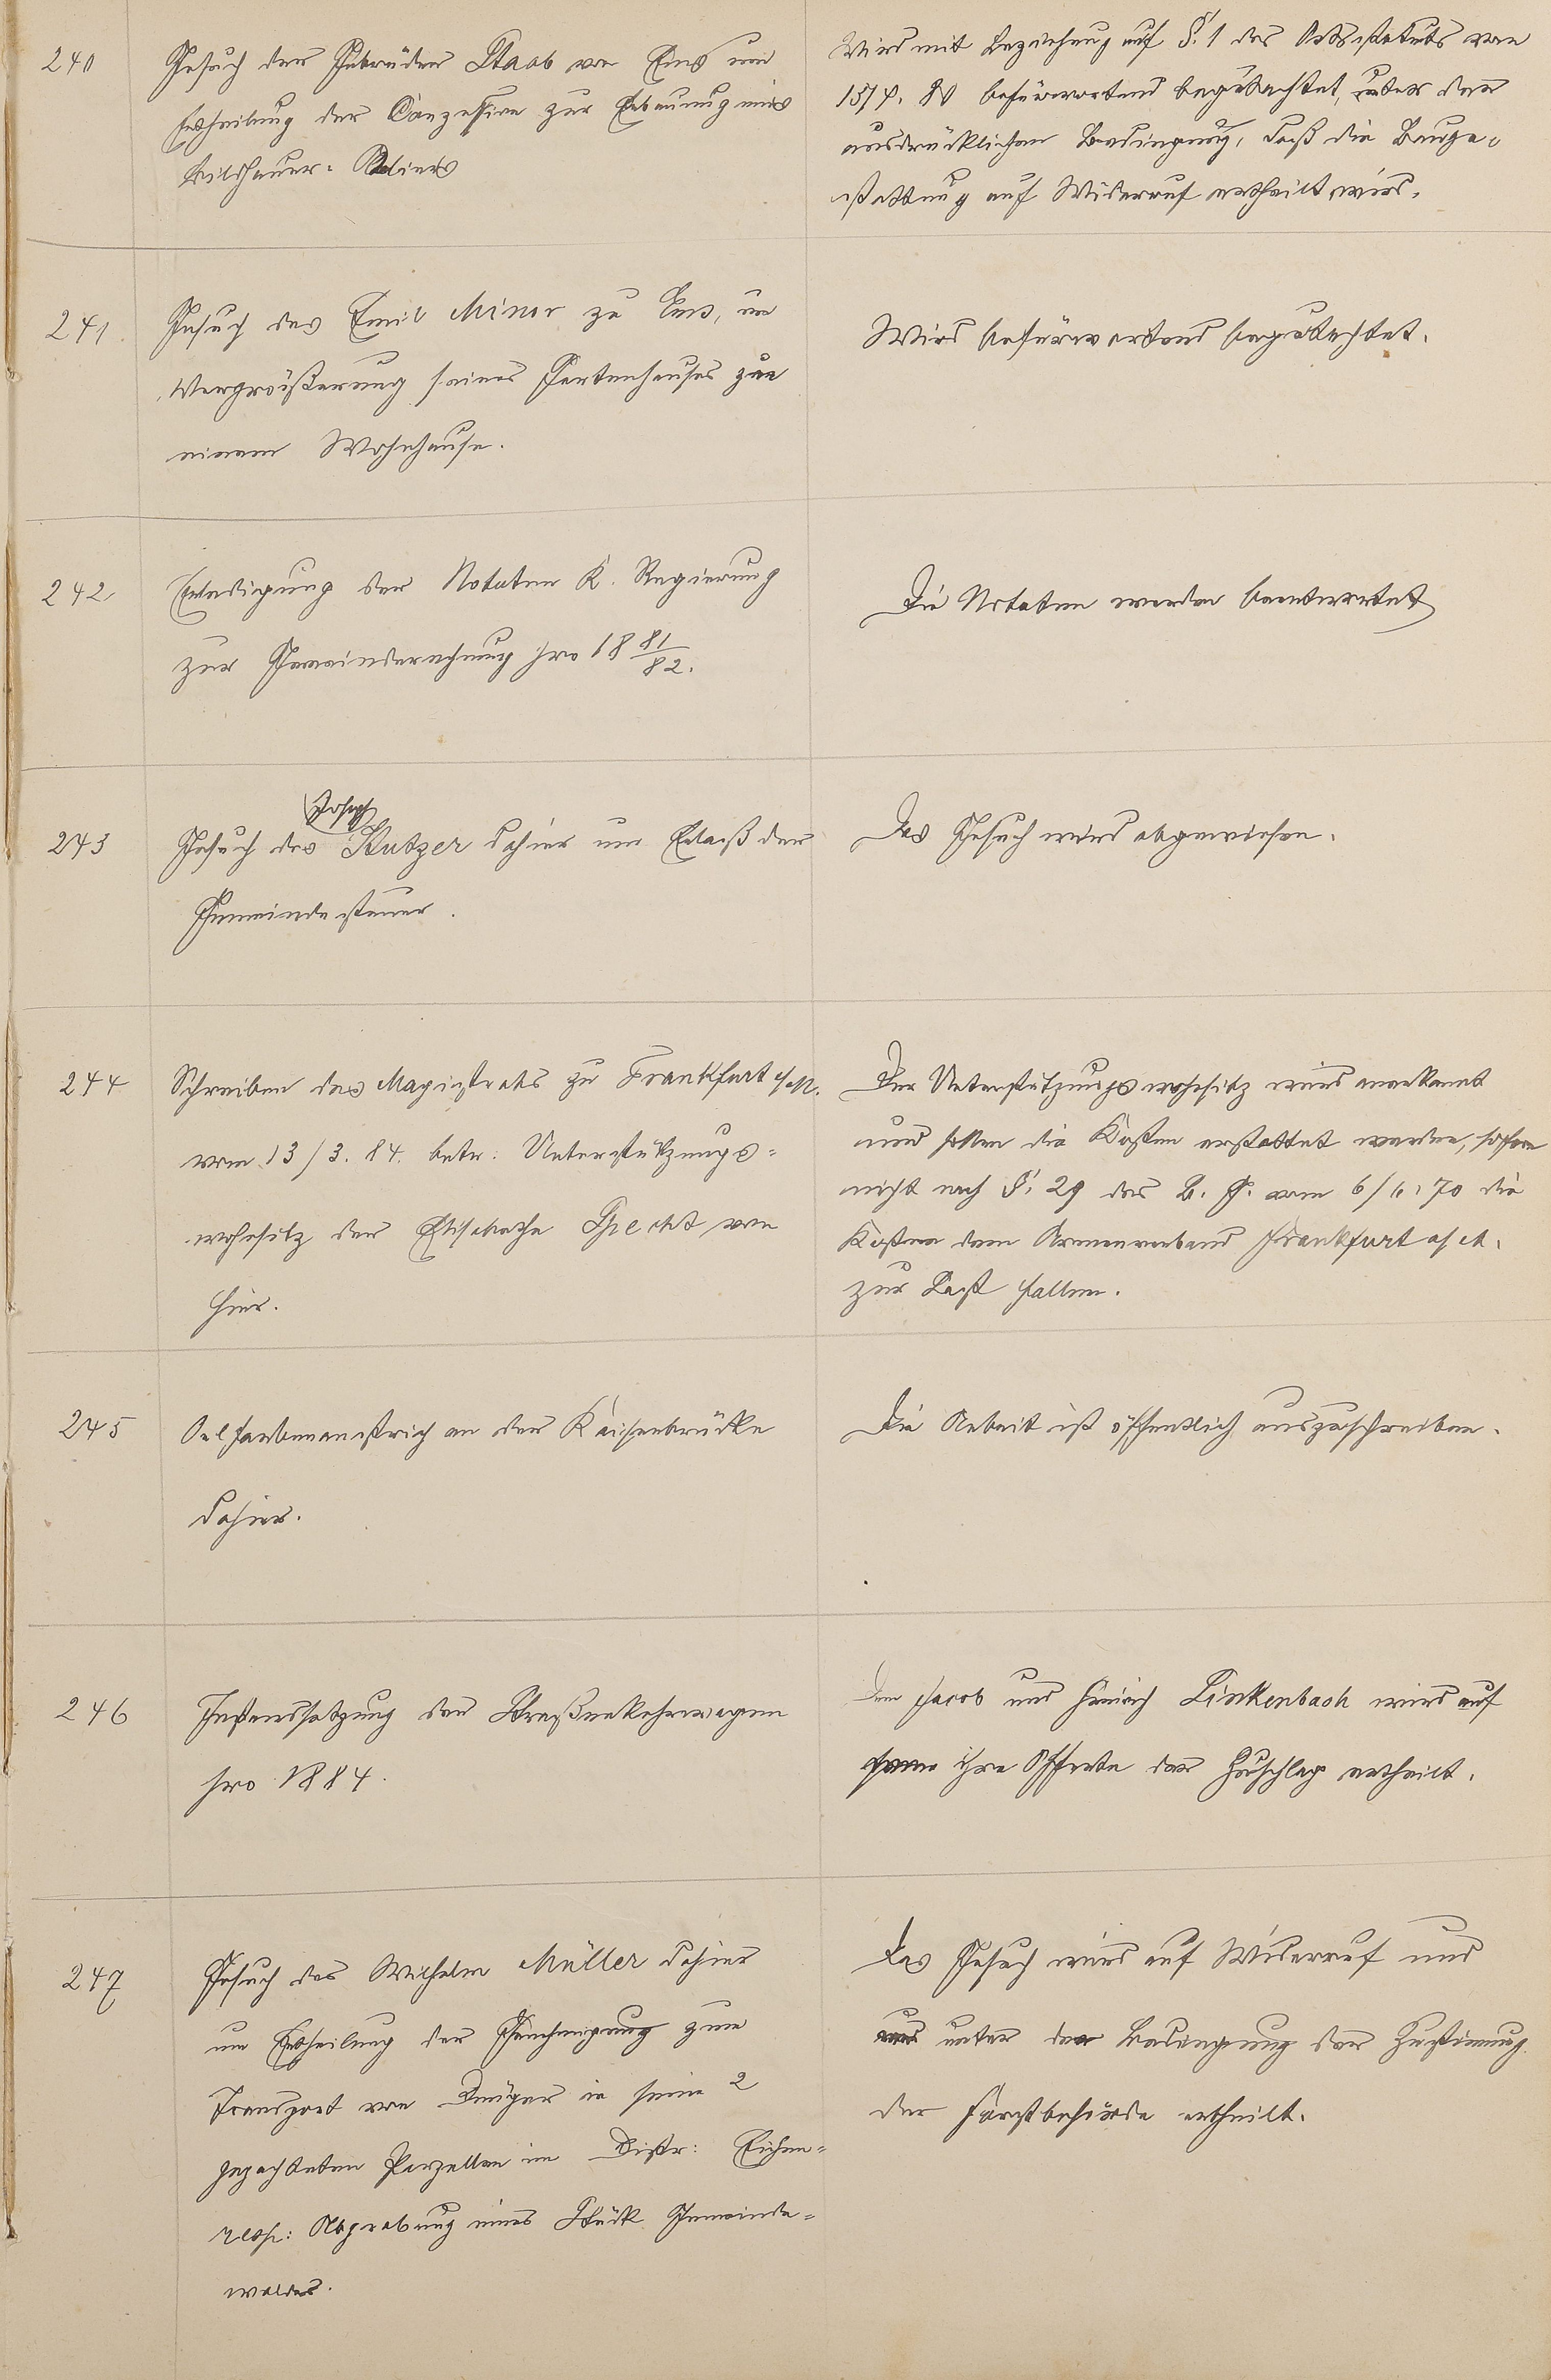 240
Gesuch der Gebrüder Staab von Ems um
Ertheilung der Conzession zur Erbauung eines
Bildhauer-Ateliers
Wird mit Beziehung auf §. 1 des Ortsstatuts vom
15/4. 80 befürwortend begutachtet, unter der
ausdrücklichen Bedingung, daß die Bauge-
stattung auf Widerruf ertheilt wird.
241.
Gesuch des Emil Minor zu Ems, um
Vergrößerung seines Gartenhauses zu
einem Wohnhause.
Wird befürwortend begutachtet.
242
Erledigung der Notaten K. Regierung
zur Gemeinderechnung pro 18 81/82.
Die Notaten werden beantwortet
243
Joseph
Gesuch des Kutzer dahier um Erlaß der
Gemeindesteuer.
Das Gesuch wird abgewiesen.
244
Schreiben des Magistrats zu Frankfurt a/M.
vom 13/3. 84. betr: Unterstützungs-
wohnsitz der Elisabetha Specht von
hier.
Der Unterstützungswohnsitz wird anerkannt
und sollen die Kosten erstattet werden, sofern
nicht nach §. 29 des B. G. vom 6/6. 70 die
Kosten dem Armenverband Frankfurt a/M.
zur Last fallen.
245
Oelfarbenanstrich an der Kaiserbrücke
dahier.
Die Arbeit ist öffentlich auszuschreiben.
246
Instandsetzung der Straßenkehrwagen
pro 1884.
Dem Jacob und Heinrich Linkenbach wird auf
ihre Offerte der Zuschlag ertheilt.
247
Gesuch des Wilhelm Müller dahier
um Ertheilung der Genehmigung zum
Transport von Dünger in seine 2
gepachteten Parzellen im Distr: Eichen-
resp: Abgrabung eines Stück Gemeinde-
waldes.
Das Gesuch wird auf Widerruf und
unter der Bedingung der Zustimmung
der Forstbehörde ertheilt.